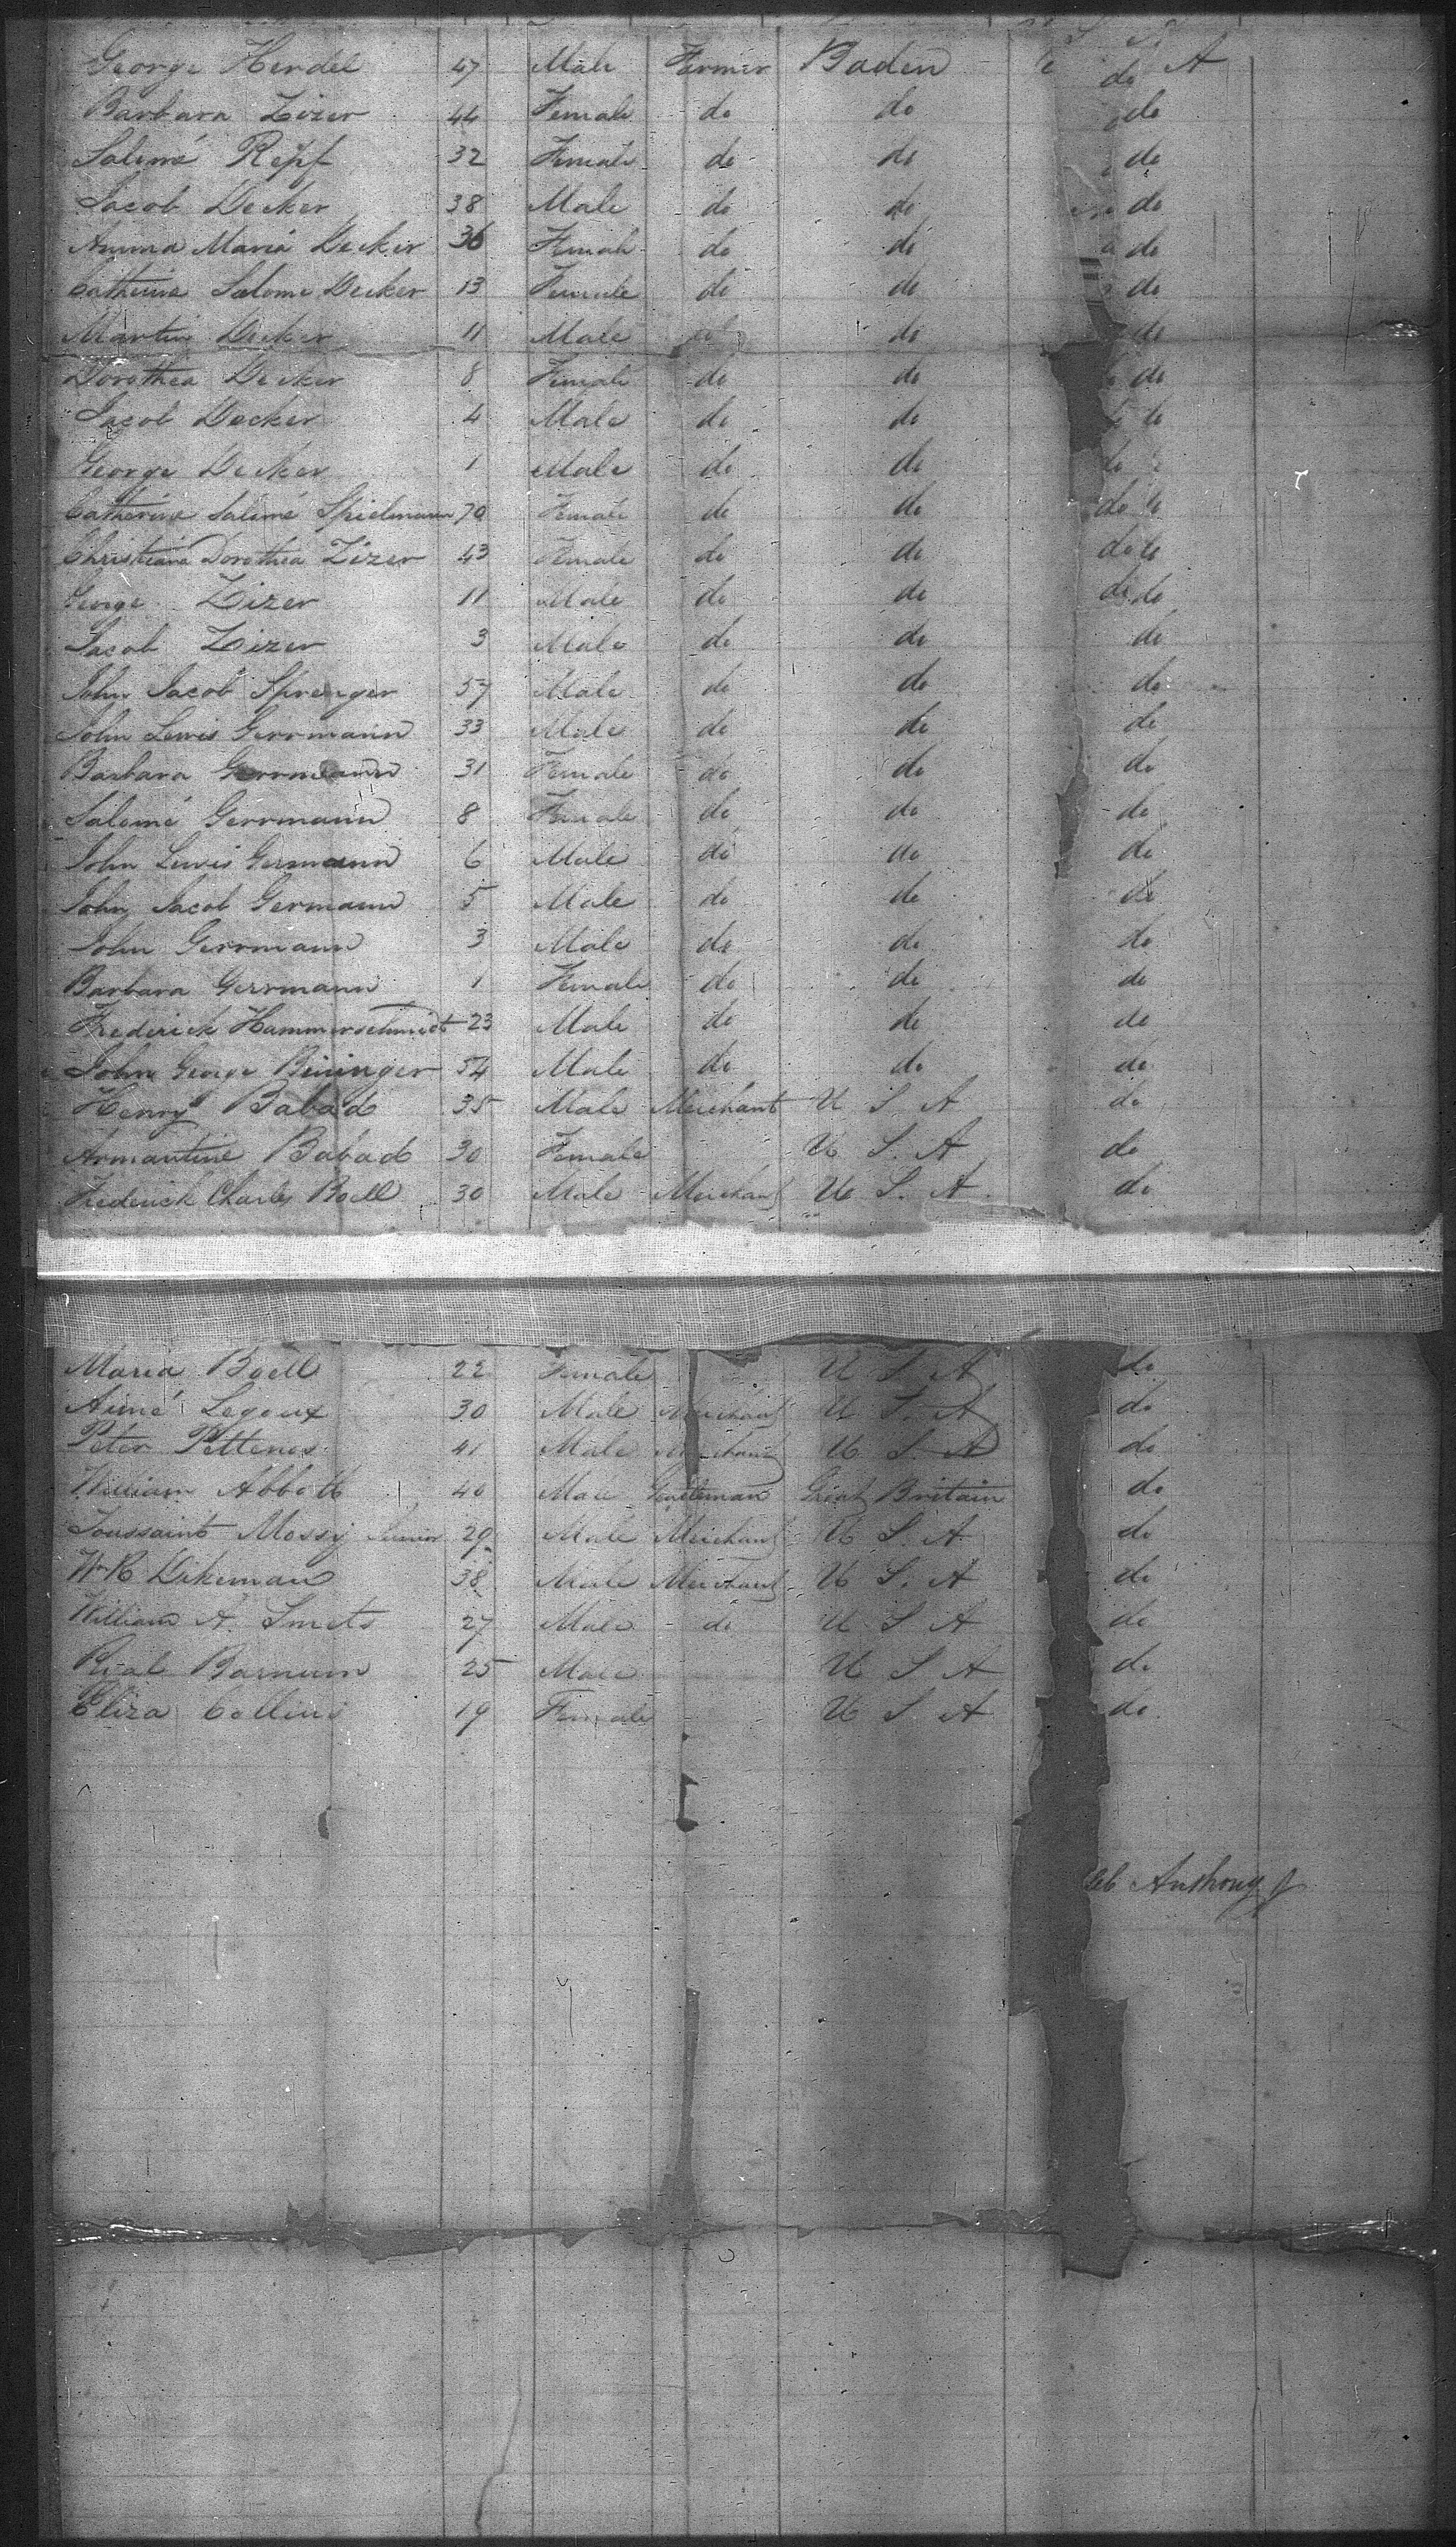 George Herdel 47 Male Farmer Baden do A
Barbara Zizer 44 Female do do do
Salomé Repf 32 Female do do do
Jacob Decker 38 Male do do do
Annma Maria Decker 36 Female do do do
Catherine Salome Decker 13 Female do do do
Martin Decker 11 Male do do do
Dorothea Decker 8 Female do do do
Jacob Decker 4 Male do do
George Decker 1 Male do do do
Catherine Salomé Spielmann 70 Female do do do
Christiana Dorothea Zizer 43 Female do do do
George Zizer 11 Male do do do do
Jacob Zizer 3 Male do do do
John Jacob Sprenger 57 Male do do do
John Lewis Gerrmann 33 Male do do do
Barbara Gerrmann 31 Female do do do
Salomé Gerrmann 8 Female do do do
John Lewis Germann 6 Male do do do
John Jacob Germann 5 Male do do do
John Gerrmann 3 Male do do do
Barbara Gerrmann 1 Female do do do
Frederick Hammerschmidt 23 Male do do do
John George Bininger 54 Male do do do
Henry Babad 35 Male Merchant U S A do
Armantine Babad 30 Female U S. A do
Frederick Charles Boell 30 Male Merchant U S. A do
Maria Boell 22 Female U S A do
Aimé Legoux 30 Male Merchant U S. A do
Peter 41 Male Merchant U S. A do
William Abbott 40 Male Gentleman Great Britain do
Toussaint Mossy Junior 29 Male Merchant U S. A do
Wm R Dikeman 38 Male Merchant U S. A do
William A. Smets 27 Male do U S A do
Rial Barnum 25 Male U S A do
Eliza Collins 19 Female U S A do
leb Anthony Jr